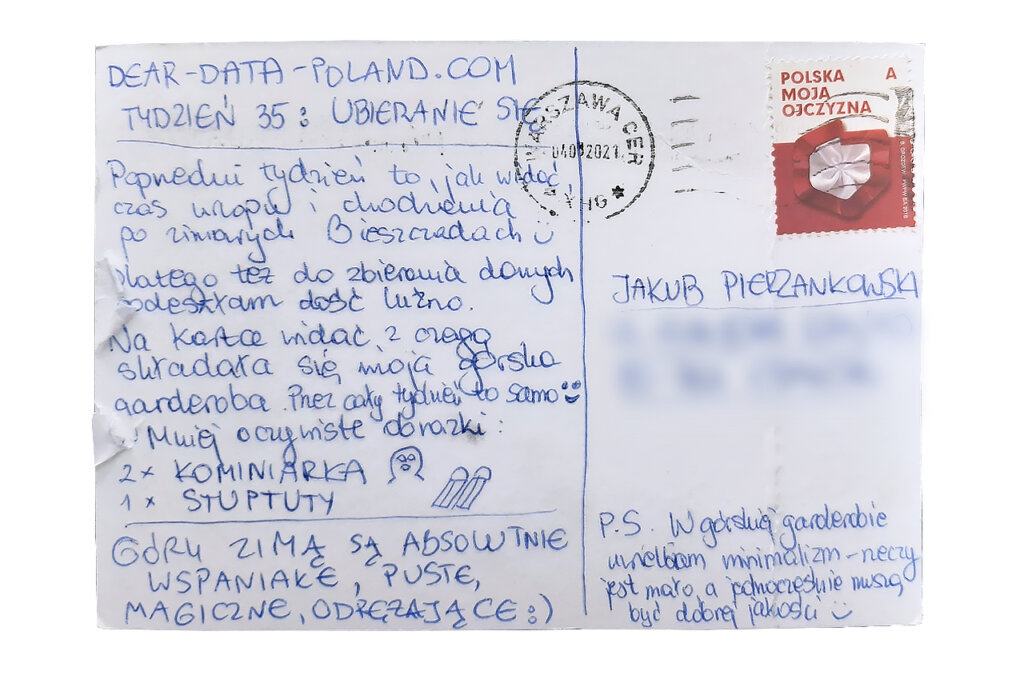 DEAR-DATA-POLAND.COM
TYDZIEŃ 35: UBIERANIE SIĘ
Poprzedni tydzień to, jak widać,
czas urlopu i chodzenia
po zimowych Bieszczadach
dlatego też do zbierania danych
podeszłam dość luźno.
Na kartce widać z czego
składała się moja górska
garderoba. Przez cały tydzień to samo
Mniej oczywiste obrazki:
2x KOMINIARKA
1x STUPTUTY
GÓRY ZIMĄ SĄ ABSOLUTNIE
WSPANIAŁE, PUSTE,
MAGICZNE, ODPRĘŻAJĄCE :)
WARSZAWA CER
2021
POLSKA A
MOJA
OJCZYZNA
JAKUB PIERZANKOWSKI
P.S. W górskiej garderobie
uwielbiam minimalizm - rzeczy
jest mało, a jednocześnie muszą
być dobrej jakości